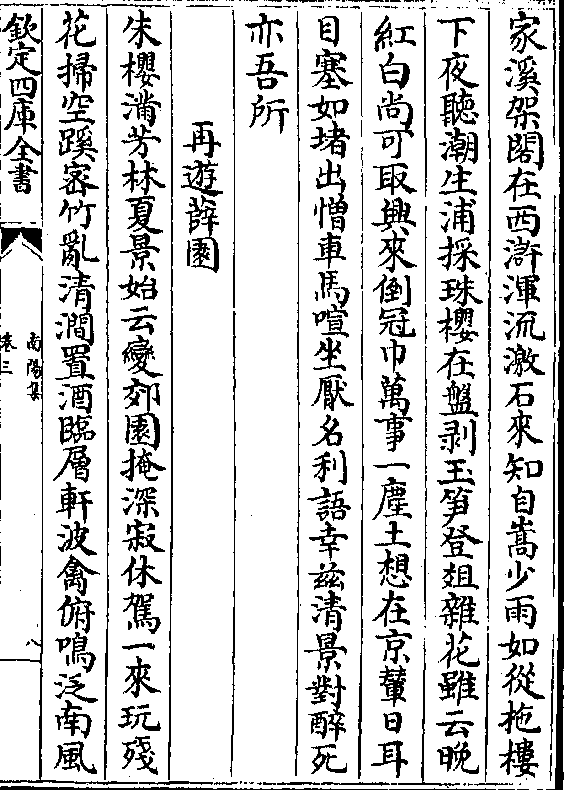 家溪架閣在西滸渾流激石來知自嵩少雨如從拖樓
下夜聽潮生浦採珠櫻在盤剥玉筍登俎雜花雖云晚
紅白尚可取興來倒冠巾萬事一塵土想在京輦日耳
目塞如堵出憎車馬喧坐厭名利語幸兹清景對醉死
亦吾所
再遊薛園
朱櫻滿芳林夏景始云變郊園掩深寂休駕一來玩殘
花掃空蹊密竹亂清澗置酒臨層軒波禽俯鳴泛南風
欽定四庫全書
南陽集
卷三
八